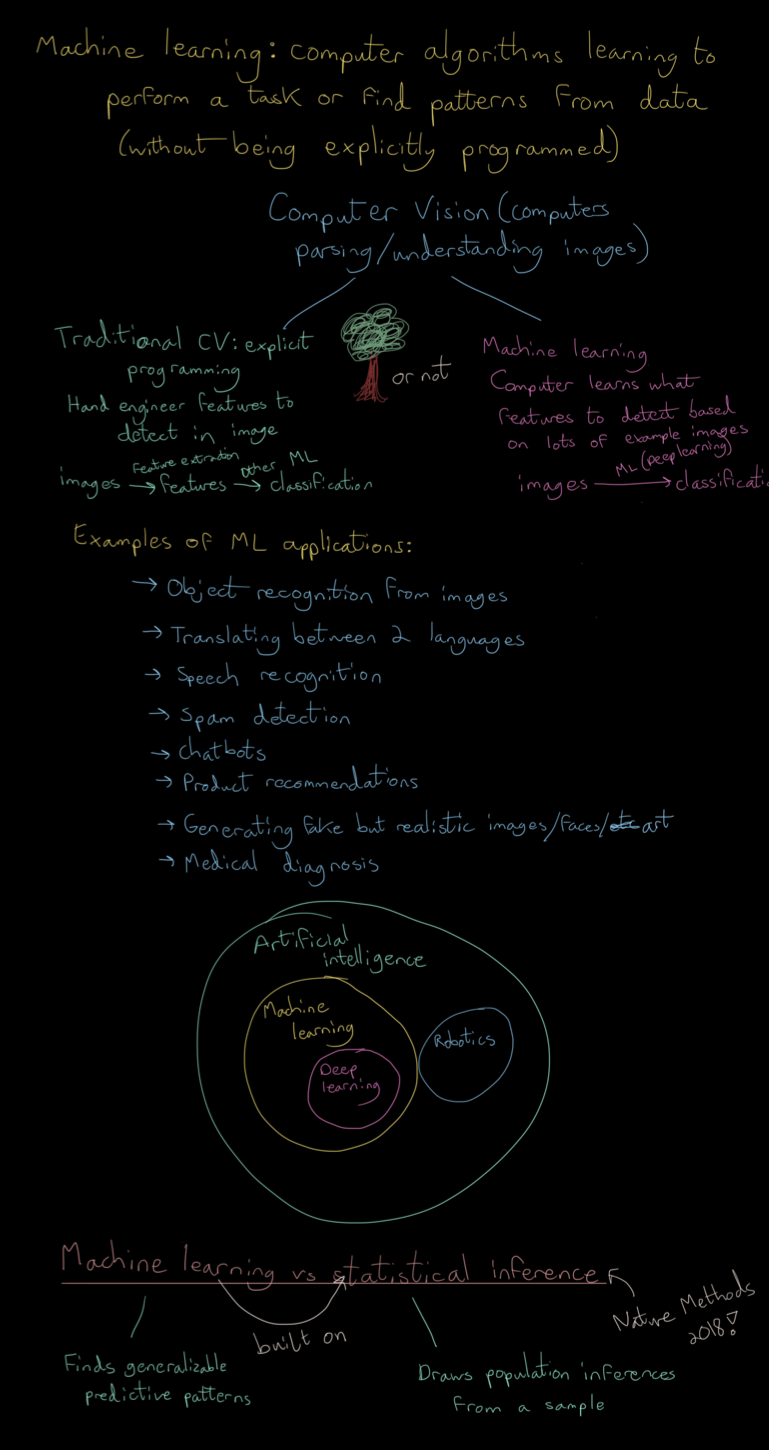 Machine learning: computer algorithms learning to
perform a task or find patterns from data
(without being explicitly programmed)
Computer Vision (computers
parsing/understanding images)
Traditional CV: explicit
programming
Hand engineer features to
detect in image
Feature extration
other ML
images → features → classification
or not
Machine learning
Computer learns what
features to detect based
on lots of example images
ML (peep learning)
images → classificati
Examples of ML applications:
→ Object recognition from images
→ Translating between 2 languages
→ Speech recognition
→ Spam detection
→ Chatbots
→ Product recommendations
→ Generating fake but realistic images/faces/art
→ Medical diagnosis
Artificial
intelligence
Machine
learning
Deep
learning
Robotics
Machine learning vs statistical inference
Nature Methods
2018!
built on
Finds generalizable
predictive patterns
Draws population inferences
from a sample